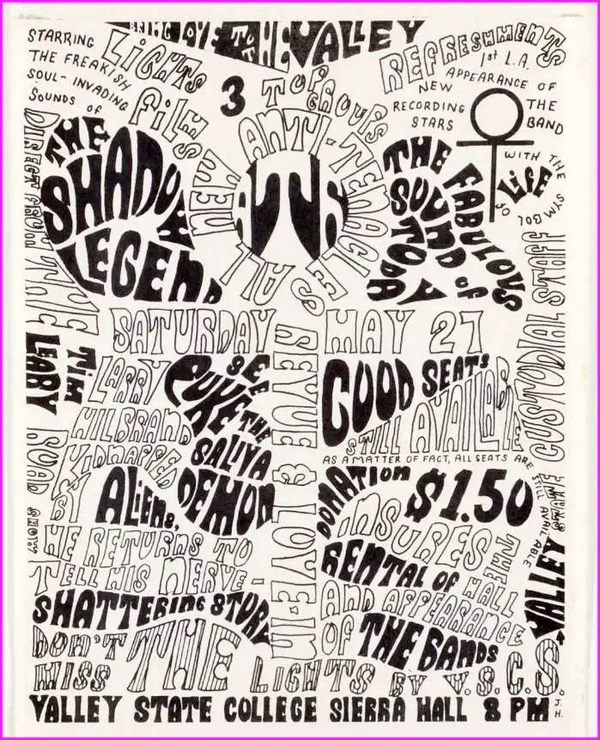 BEING LOVE TO THE VALLEY
STARRING
THE FREAKISH
SOUL-INVADING
SOUNDS OF
THE
SHADOW
LEGEND
LIGHTS
FILMS
3 TOP GROUPS
NEW ANTI-TENACLES
REFRESHMENTS
1st L.A.
APPEARANCE OF
NEW
RECORDING
STARS
THE
BAND
WITH THE
SYMBOL
OF
LIFE
THE FABULOUS
SOUND OF
TODAY
DIRECT FROM
THE
TIM
LEARY
ROAD SHOW
CUSTODIAL STAFF
SATURDAY MAY 27
REVUE & LOVE-IN
LARRY
HILBRAND
KIDNAPPED
BY ALIENS.
HE RETURNS TO
TELL HIS NERVE-
SHATTERING STORY
SEE
PUKE THE
SALIVA
DEMON
GOOD SEATS
STILL AVAILABLE
AS A MATTER OF FACT, ALL SEATS ARE
STILL AVAILABLE
DONATION $1.50
INSURES THE
RENTAL OF HALL
AND APPEARANCE
OF THE BANDS
VALLEY
DON'T
MISS
THE
LIGHTS BY V.S.C.S.
VALLEY STATE COLLEGE SIERRA HALL 8 PM
J.H.